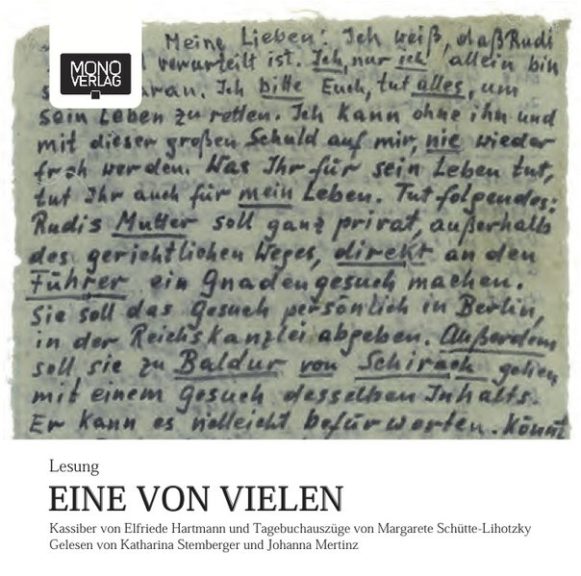 MONO
VERLAG
Meine Lieben! Ich weiß, daß Rudi
verurteilt ist. Ich, nur ich allein bin
daran. Ich bitte Euch, tut alles, um
sein Leben zu retten. Ich kann ohne ihn und
mit dieser großen Schuld auf mir, nie wieder
froh werden. Was Ihr für sein Leben tut,
tut Ihr auch für mein Leben. Tut folgendes:
Rudis Mutter soll ganz privat, außerhalb
des gerichtlichen Weges, direkt an den
Führer ein Gnadengesuch machen.
Sie soll das Gesuch persönlich in Berlin,
in der Reichskanzlei abgeben. Außerdem
soll sie zu Baldur von Schirach gehen
mit einem Gesuch desselben Inhalts.
Er kann es vielleicht befürworten. Könnt
Lesung
EINE VON VIELEN
Kassiber von Elfriede Hartmann und Tagebuchauszüge von Margarete Schütte-Lihotzky
Gelesen von Katharina Stemberger und Johanna Mertinz